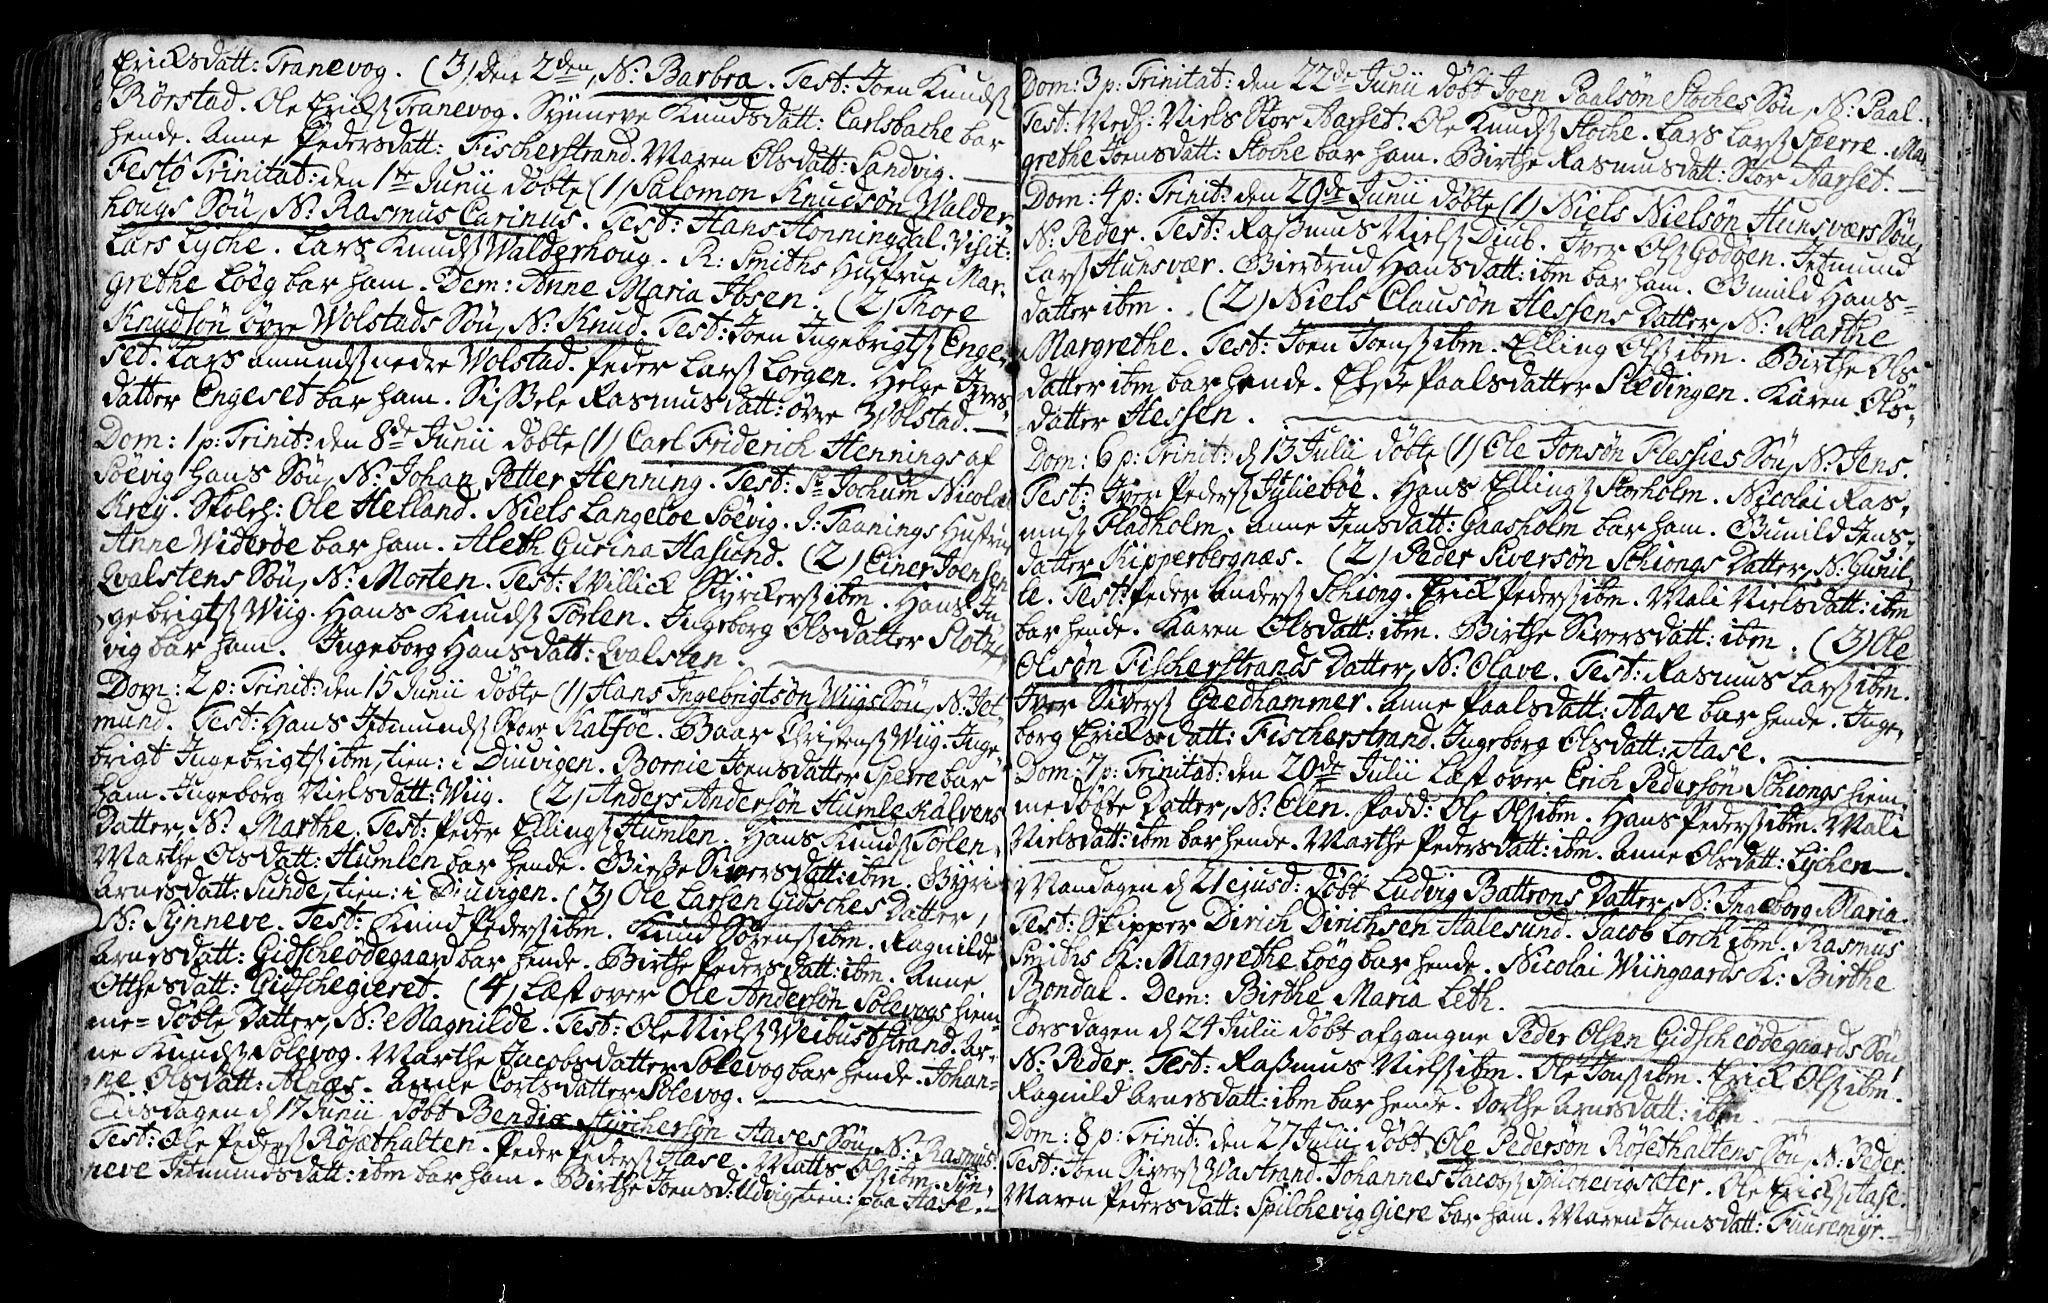 Ericksdatt: Tranevog. (3) den 2den, N: Barbra. Test: Joen Knuds
Rørstad. Ole Ericks Tranevog. Synneve Knudsdatt: Carlsbache bar
hende. Anne Pedersdatt: Fischerstrand. Maren Olsdatt: Sandvig.
Festo Trinitat: den 1te Junii døbte (1) Salomon Knudsøn Walder-
hougs Søn, N: Rasmus Carinus. Test: Hans Honningdal: Visit:
Lars Lyche. Lars Knuds Walderhoug. R: Smiths Hustrue Mar-
grethe Løeg bar ham. Dem: Anne Maria Ibsen. (2) Thore
Knudsøn øvre Wolstads Søn, N: Knud. Test: Joen Ingebrigts Enge-
set. Lars Amunds nedre Wolstad. Peder Lars Lorgen. Helge Ivers-
datter Engeset bar ham. Sissele Rasmusdatt: øvre Wolstad.
Dom: 1 p: Trinit: den 8de Junii døbte (1) Carl Friderich Hennings af
Søevig hans Søn, N: Johan Petter Henning. Test: Sr Jochum Nicolai
Krey. Skoleh: Ole Helland. Niels Langeløe Søevig. J: Taanings Hustrue
Anne Widerøe bar ham. Aleth Gurina Hasund. (2) Einer Joensen
Qvalstens Søn, N: Morten. Test: Willick Styrckers ibm. Hans In-
gebrigts Wiig. Hans Knuds Torlen. Ingeborg Olsdatter Slotz-
vig bar ham. Ingeborg Hansdatt: Qvalsten.
Dom: 2 p: Trinit: den 15 Junii døbte (1) Hans Ingebrigtsøn Wiigs Søn, N: Jet-
mund. Test: Hans Jetmunds Store Kalføe. Baar Christens Wiig. Inge-
brigt Ingebrigts ibm, tien: i Diuvigen. Bornie Joensdatter Sperre bar
ham. Ingeborg Nielsdatt: Wiig. (2) Anders Andersøn Humle Kalvens
Datter, N: Marthe. Test: Peder Ellings Humlen. Hans Knuds Tørlen.
Marthe Olsdatt: Humlen bar hende. Giesse Siversdatt: ibm. Gyri
Arnesdatt: Sunde, tien: i Diuvigen. (3) Ole Larsen Gidsches Datter,
N: Synneve. Test: Knud Peders ibm. Knud Sørens ibm. Ragnilde
Arnesdatt: Gidscheødegaard bar hende. Birthe Pedersdatt: ibm. Anne
Otthesdatt: Gidschegieret. (4) Læst over Ole Andersøn Solevogs hiem-
me-døbte Datter, N: Magnilde. Test: Ole Niels Weibust strand. Ar-
ne Knuds Solevog. Marthe Jacobsdatter Solevog bar hende. Johan-
ne Olsdatt: Alnæs. Anne Cortsdatter Solevog.
Tiisdagen d 17 Junii døbt Bendix Styrchersøn Aases Søn, N: Rasmus.
Test: Ole Peders Røsethalten. Peder Peders Aase. Matts Ols ibm. Syn-
neve Jetmundsdatt: ibm bar ham. Birthe Joensd: Udvig, tien: paa Aase.
Dom: 3 p: Trinitat: den 22de Junii døbt Joen Paalsøn Stoches Søn, N: Paal.
Test: Medh: Niels Stor Aarset. Ole Knuds Stoche. Lars Lars Sperre. Mar-
grethe Joensdatt: Stoche bar ham. Birthe Rasmusdatt: Stor Aarset.
Dom: 4 p: Trinit: den 29de Junii døbte (1) Niels Nielsøn Hunsværs Søn,
N: Peder. Test: Rasmus Niels Diub. Iver Ols Godøen. Jetmund
Lars Hunsvær. Giertrud Hansdatt: ibm bar ham. Gunild Hans-
datter ibm. (2) Niels Clausøn Hessens Datter, N: Marthe
Margrethe. Test: Joen Joens ibm. Elling Ols ibm. Birthe Ols-
datter ibm bar hende. Else Paalsdatter Slædingen. Karen Ols-
datter Hessen.
Dom: 6 p: Trinit: d 13 Julii døbte (1) Ole Jonsøn Flessies Søn, N: Jens.
Test: Iver Peders Jyliebøe. Hans Ellings Storholm. Nicolai Ras-
mus Fladholm. Anne Jensdatt: Gaasholm bar ham. Gunild Jens-
datter Kipperbergnæs. (2) Peder Siversøn Schiongs Datter, N: Gunil-
le. Test: Peder Anders Schiong. Erick Peders ibm. Mali Nielsdatt: ibm
bar hende. Karen Olsdatt: ibm. Birthe Siversdatt: ibm. (3) Ole
Olsøn Fischerstrands Datter, N: Olave. Test: Rasmus Lars ibm.
Iver Sivers Geedhammer. Anne Paalsdatt: Aase bar hende. Inge-
borg Ericksdatt: Fischerstrand. Ingeborg Olsdatt: Aase.
Dom: 7 p: Trinitat: den 20de Julii Læst over Erich Pedersøn Schiongs hiem-
me døbte Datter, N: Elen. Fadd: Ole Ols ibm. Hans Peders ibm. Mali
Nielsdatt: ibm bar hende. Marthe Pedersdatt: ibm. Anne Olsdatt: Lychen.
Mandagen d 21 ejusd: døbt Ludvig Battrons Datter, N: Ingeborg Maria.
Test: Skipper Dirich Dirichsen Aalesund. Jacob Lorch ibm. Rasmus
Smiths K: Margrethe Løeg bar hende. Nicolai Wiingaards K: Birthe
Bondal. Dem: Birthe Maria Leth.
Torsdagen d 24 Julii døbt afgangne Peder Olsen Gidscheødegaards Søn,
N: Peder. Test: Rasmus Niels ibm. Ole Jons ibm. Erick Ols ibm.
Ragnild Arnesdatt: ibm bar hende. Dorthe Arnesdatt: ibm
Dom: 8 p: Trinit: den 27 Julii døbt Ole Pedersøn Røsethaltens Søn, N: Peder.
Test: Joen Sivers Wastrand. Johannes Jacobs Spilchevigsæter. Ole Ericks Aase.
Maren Pedersdatt: Spilchevig Giere bar ham. Maren Jonsdatt: Fuuremyr.